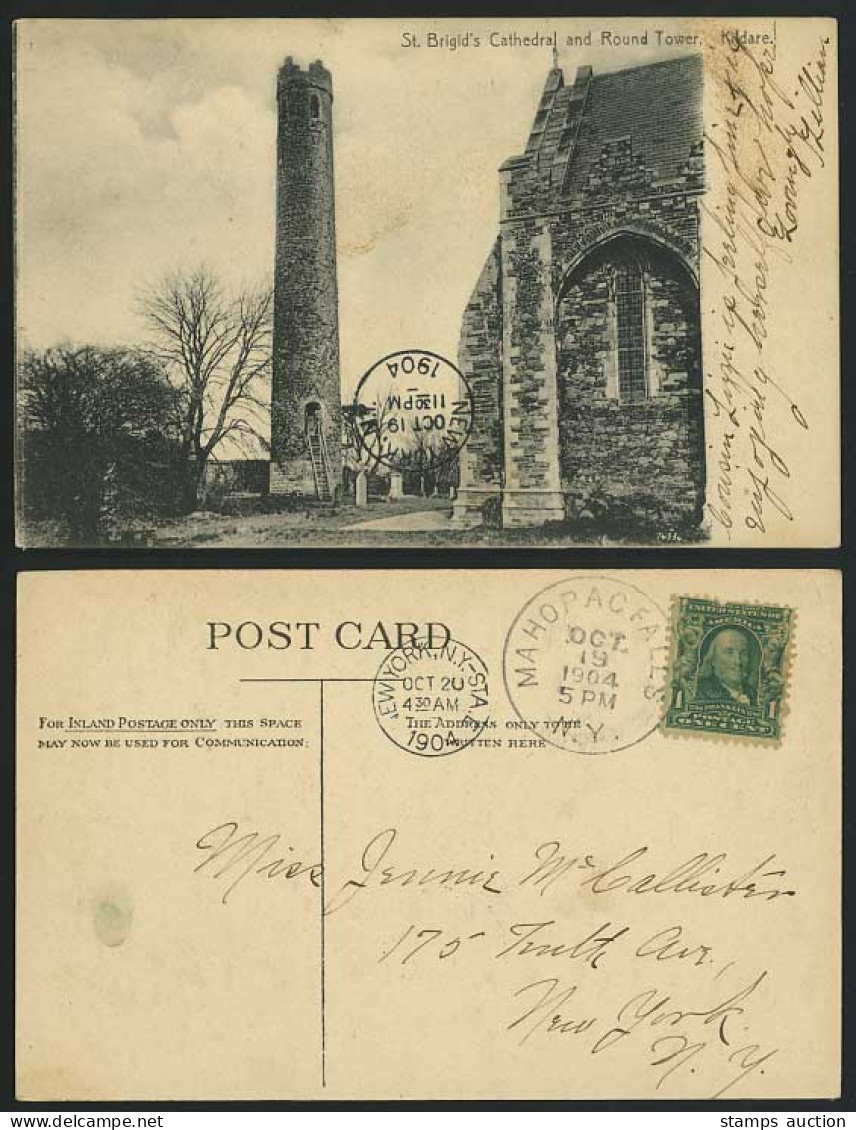 St. Brigid's Cathedral and Round Tower. Kildare.
Cousin Lizzie is feeling fine & is
enjoying herself
Lovingly
Lillian
NEW YORK, N.Y.
OCT 19
11 30 PM
1904
POST CARD
FOR INLAND POSTAGE ONLY THIS SPACE
MAY NOW BE USED FOR COMMUNICATION:
THE ADDRESS ONLY TO BE
WRITTEN HERE
NEW YORK, N.Y.-STA.
OCT 20
4 30 AM
1904
MAHOPAC FALLS
OCT
19
1904
5 PM
N.Y.
UNITED STATES OF
AMERICA
1 1
FRANKLIN
POSTAGE
ONE CENT
Miss Jennie McCallister
175 Tenth Ave.,
New York
N.Y.
stamps auction